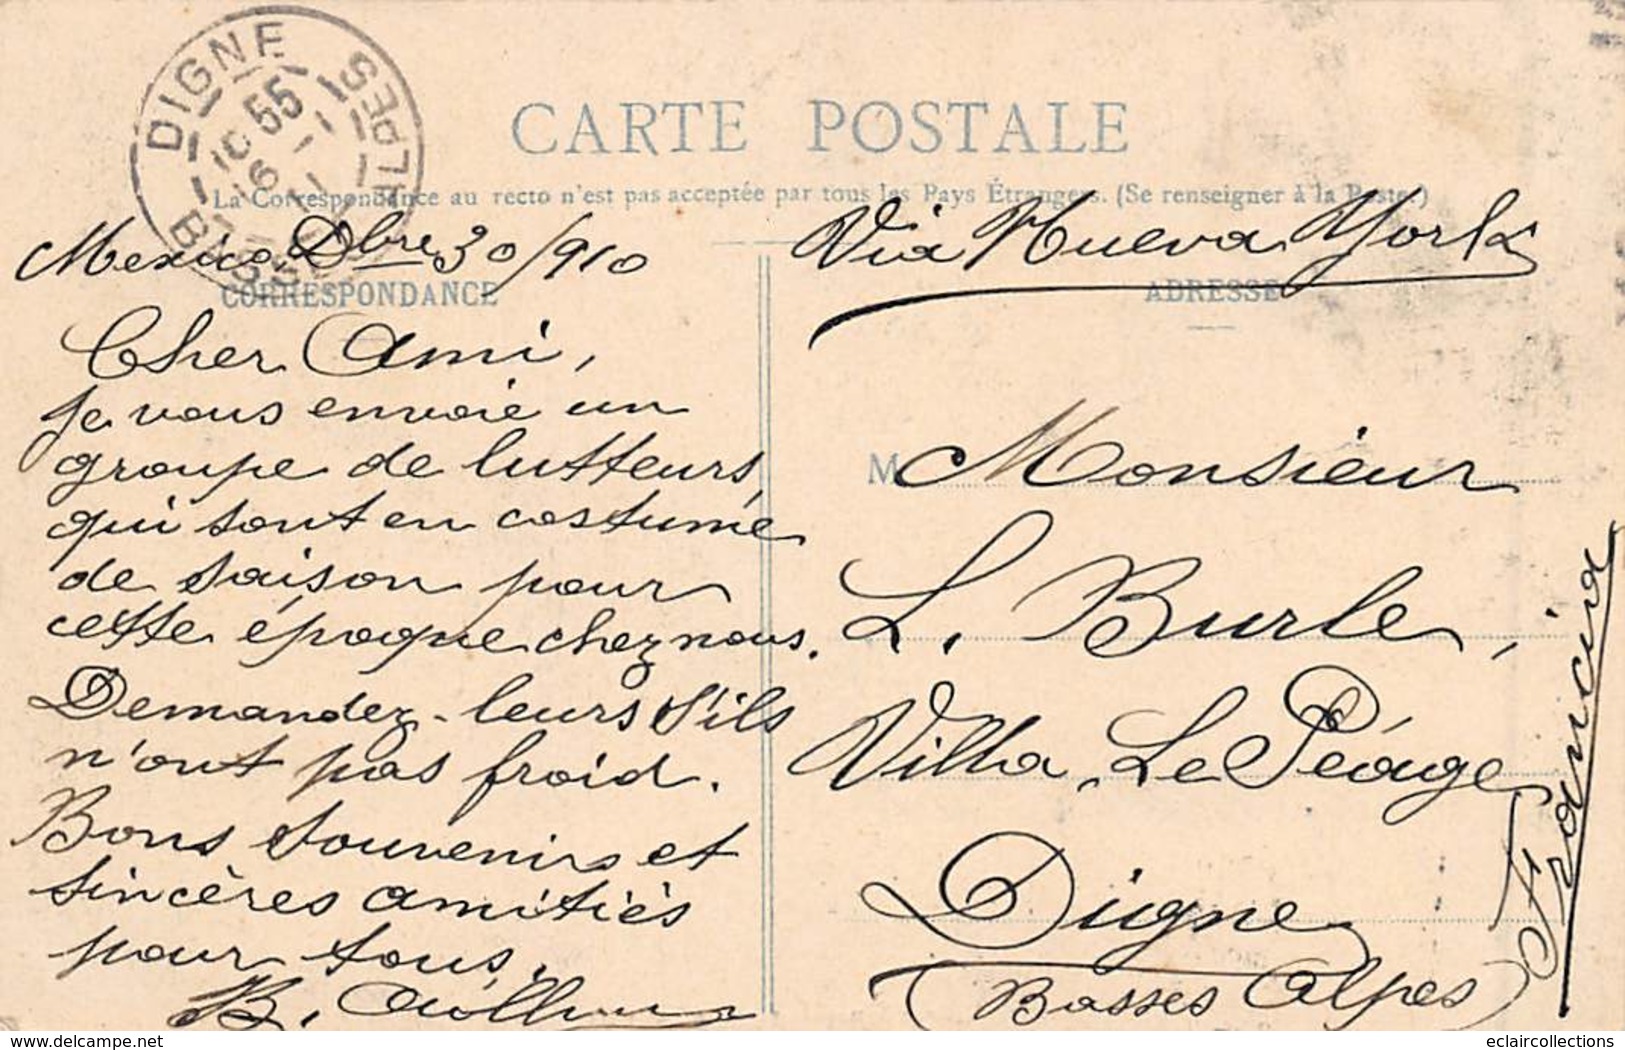 DIGNE
BASSES ALPES
10 55
16
CARTE POSTALE
La Correspondance au recto n'est pas acceptée par tous les Pays Étrangers. (Se renseigner à la Poste.)
Mexico Dbre 30/910
CORRESPONDANCE
Cher Ami,
je vous envoie un
groupe de lutteurs,
qui sont en costume
de saison pour
cette époque chez nous.
Demandez-leurs s'ils
n'ont pas froid.
Bons souvenirs et
sincères amitiés
pour tous.
B.
Via Nueva York
ADRESSE
M Monsieur
L. Burle,
Villa Le Péage
Digne
(Basses Alpes)
Francia
www.delcampe.net
eclaircollections